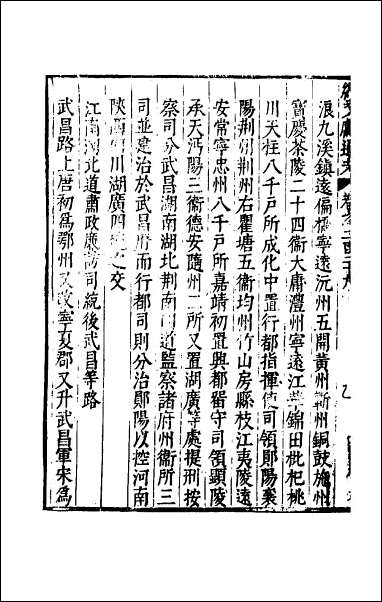 浪九溪鎮遠偏橋寧遠沅州五開黃州蘄州銅鼓施州
寶慶茶陵二十四衞大庸澧州寧遠江華錦田枇杷桃
川天柱八千戶所成化中置行都指揮使司領鄖陽襄
陽荆州荆州右瞿塘五衞均州竹山房縣枝江夷陵遠
安常寧忠州八千戶所嘉靖初置興都畱守司領顯陵
承天沔陽三衞德安隨州二所又置湖廣等處提刑按
察司分武昌湖南湖北荆南四道監察諸府州衞所三
司並建治於武昌府而行都司則分治鄖陽以控河南
陝西四川湖廣四省之交
江南河北道肅政廉訪司統後武昌等路
武昌路上唐初爲鄂州又改江夏郡又升武昌軍宋爲